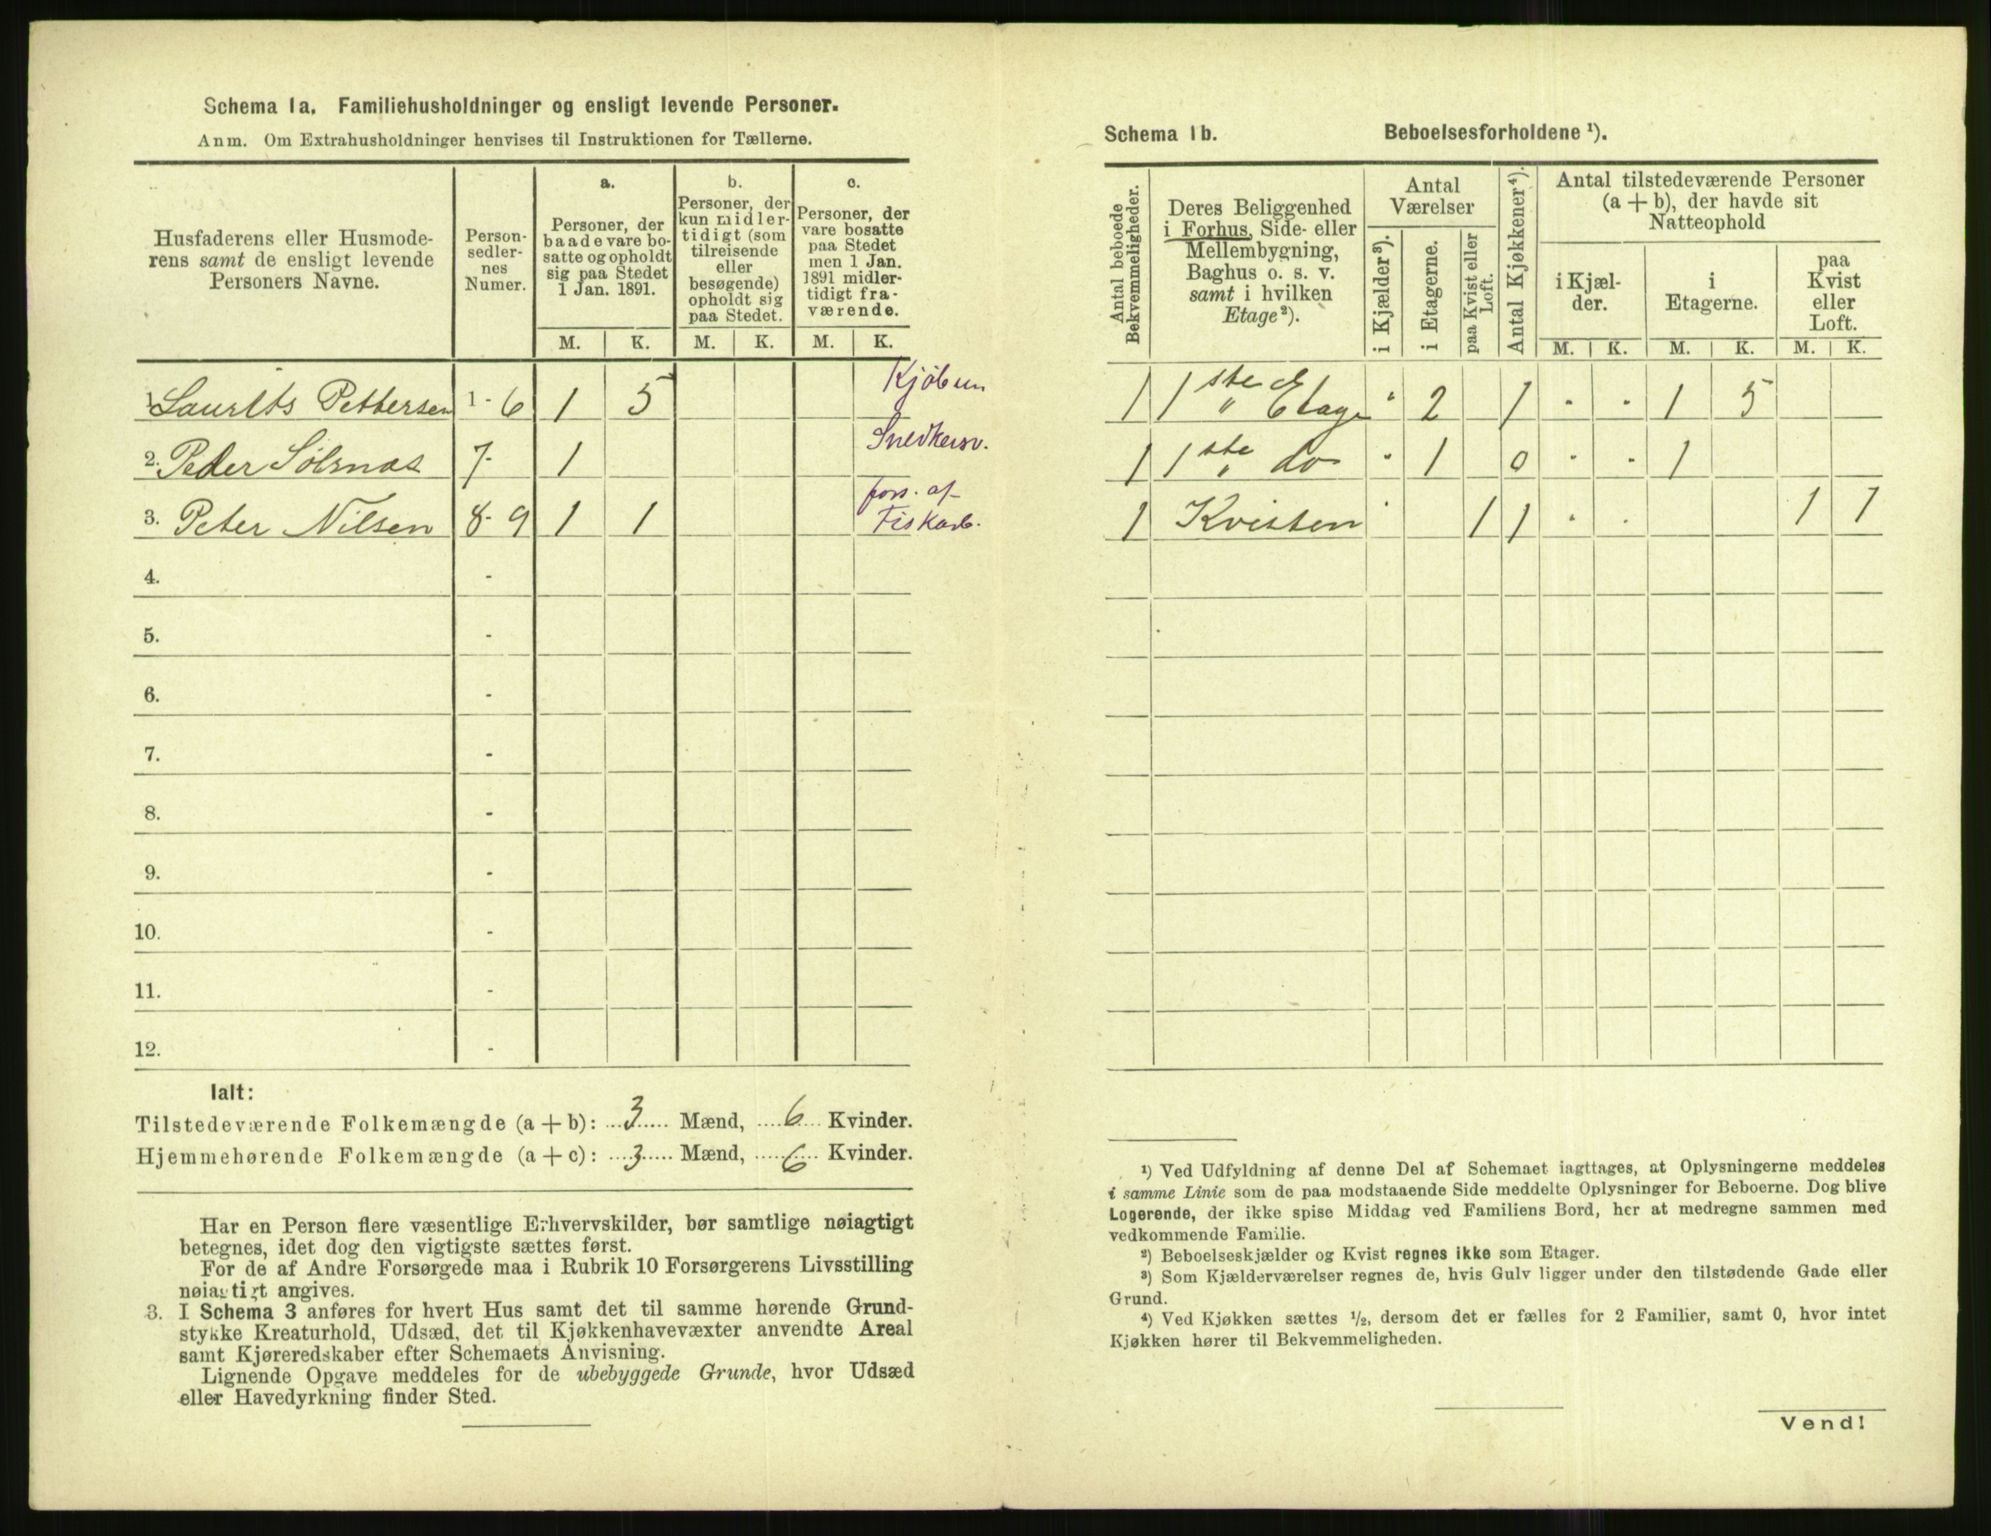 Schema 1a. Familiehusholdninger og ensligt levende Personer.
Anm. Om Extrahusholdninger henvises til Instruktionen for Tællerne.
Husfaderens eller Husmode-
rens samt de ensligt levende
Personers Navne.
Person-
sedler-
nes
Numer.
a.
Personer, der
baade vare bo-
satte og opholdt
sig paa Stedet
1 Jan. 1891.
b.
Personer, der
kun midler-
tidigt (som
tilreisende
eller
besøgende)
opholdt sig
paa Stedet.
c.
Personer, der
vare bosatte
paa Stedet
men 1 Jan.
1891 midler-
tidigt fra-
værende.
M. K. M. K. M. K.
1. Laurits Pettersen 1 - 6 1 5 Kjøbm
2. Peder Solsnæs 7 - 1 Snedkersv.
3. Peter Nilsen 8 - 9 1 1 fors. af Fiskarb.
4. -
5. -
6. -
7. -
8. -
9. -
10. -
11. -
12. -
Ialt:
Tilstedeværende Folkemængde (a + b): 3 Mænd, 6 Kvinder.
Hjemmehørende Folkemængde (a + c): 3 Mænd, 6 Kvinder.
Har en Person flere væsentlige Erhvervskilder, bør samtlige nøiagtigt
betegnes, idet dog den vigtigste sættes først.
For de af Andre Forsørgede maa i Rubrik 10 Forsørgerens Livsstilling
nøiagtigt angives.
3. I Schema 3 anføres for hvert Hus samt det til samme hørende Grund-
stykke Kreaturhold, Udsæd, det til Kjøkkenhavevæxter anvendte Areal
samt Kjøreredskaber efter Schemaets Anvisning.
Lignende Opgave meddeles for de ubebyggede Grunde, hvor Udsæd
eller Havedyrkning finder Sted.
Schema 1b. Beboelsesforholdene ¹).
Antal beboede
Bekvemmeligheder.
Deres Beliggenhed
i Forhus, Side- eller
Mellembygning,
Baghus o. s. v.
samt i hvilken
Etage²).
Antal
Værelser
i Kjælder³).
i Etagerne.
paa Kvist eller
Loft.
Antal Kjøkkener⁴).
Antal tilstedeværende Personer
(a + b), der havde sit
Natteophold
i Kjæl-
der.
i
Etagerne.
paa
Kvist
eller
Loft.
M. K. M. K. M. K.
1 1ste Etage " 2 1 " " 1 5
1 1ste do " 1 0 " " 1
1 Kvisten " 1 1 " " 1 1
¹) Ved Udfyldning af denne Del af Schemaet iagttages, at Oplysningerne meddeles
i samme Linie som de paa modstaaende Side meddelte Oplysninger for Beboerne. Dog blive
Logerende, der ikke spise Middag ved Familiens Bord, her at medregne sammen med
vedkommende Familie.
²) Beboelseskjælder og Kvist regnes ikke som Etager.
³) Som Kjælderværelser regnes de, hvis Gulv ligger under den tilstødende Gade eller
Grund.
⁴) Ved Kjøkken sættes ½, dersom det er fælles for 2 Familier, samt 0, hvor intet
Kjøkken hører til Bekvemmeligheden.
Vend!